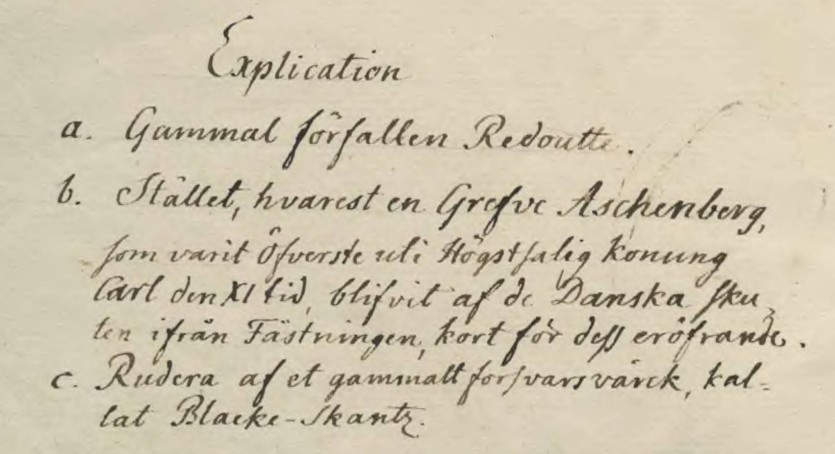 Explication
a. Gammal förfallen Redoutte.
b. Stället, hvarest en Grefve Aschenberg,
som varit Öfverste uti Högstsalig Konung
Carl den XI tid, blifvit af de Danska sku-
ten ifrån Fästningen, kort för dess eröfrande.
c. Rudera af et gammalt forsvarsvärck, kal-
lat Blacke-Skantz.